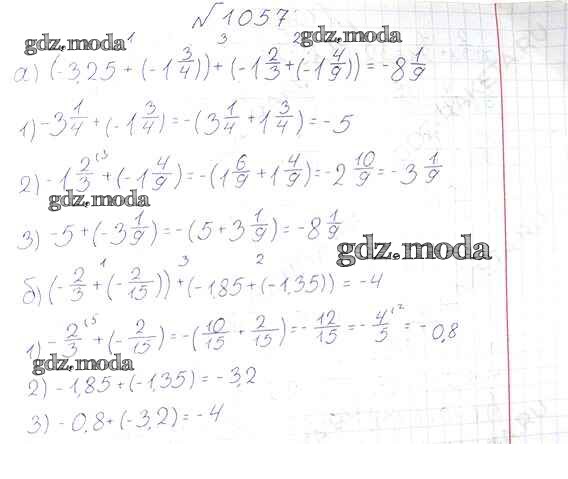 №1057
gdz.moda 1 3 2 gdz.moda
а) (-3,25 + (-1 3/4)) + (-1 2/3 + (-1 4/9)) = -8 1/9
1) -3 1/4 + (-1 3/4) = -(3 1/4 + 1 3/4) = -5
2) -1 2/3 ⁽³ + (-1 4/9) = -(1 6/9 + 1 4/9) = -2 10/9 = -3 1/9
gdz.moda
3) -5 + (-3 1/9) = -(5 + 3 1/9) = -8 1/9
gdz.moda
1 3 2
б) (-2/3 + (-2/15)) + (-1,85 + (-1,35)) = -4
1) -2/3 ⁽⁵ + (-2/15) = -(10/15 + 2/15) = -12/15 = -4/5 ⁽² = -0,8
gdz.moda
2) -1,85 + (-1,35) = -3,2
3) -0,8 + (-3,2) = -4